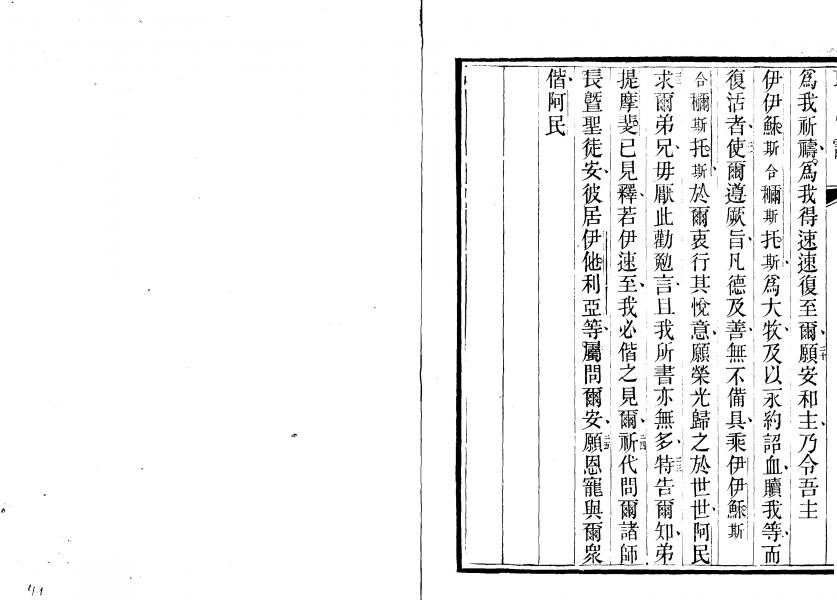 爲我祈禱爲我得速速復至爾願安和主乃令吾主
伊伊穌斯合穪斯托斯爲大牧及以永約詔血贖我等而
復活者使爾遵厥旨凡德及善無不備具乘伊伊穌斯
合穪斯托斯於爾衷行其悅意願榮光歸之於世世阿民
求爾弟兄毋厭此勸勉言且我所書亦無多特告爾知弟
提摩斐已見釋若伊速至我必偕之見爾祈代問爾諸師
長曁聖徒安彼居伊他利亞等屬問爾安願恩寵與爾衆
偕阿民
41